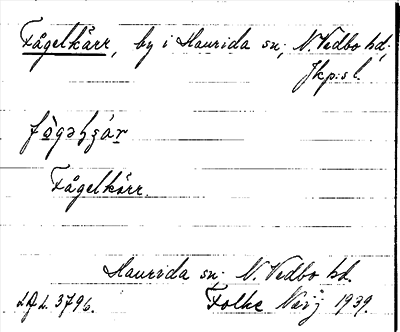 Fågelkärr, by i Haurida sn, N. Vedbo hd,
Jkp:s l.
Fågelkärr.
Haurida sn, N. Vedbo hd.
3796.
Folke 1939.